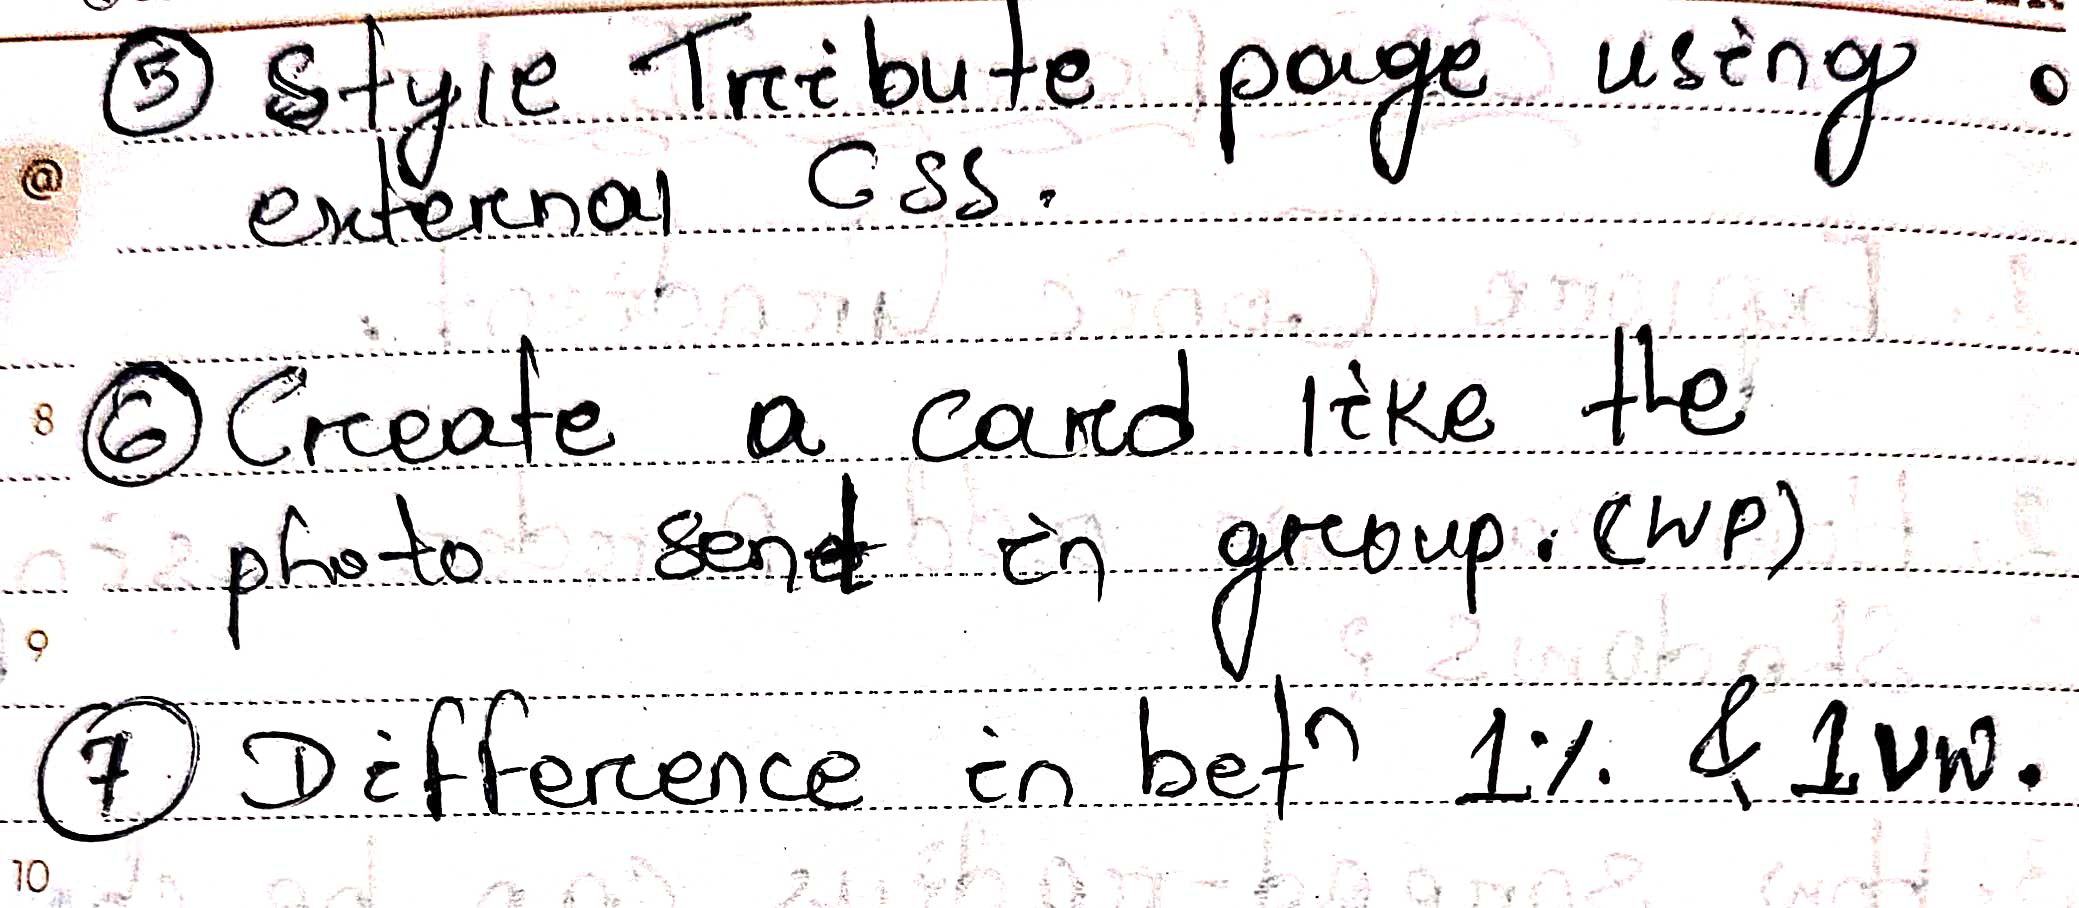 ⑤ Style Tribute page using
@
external CSS.
8 ⑥ Create a card like the
photo send in group. (WP)
9
⑦ Difference in betn 1% & 1vw.
10